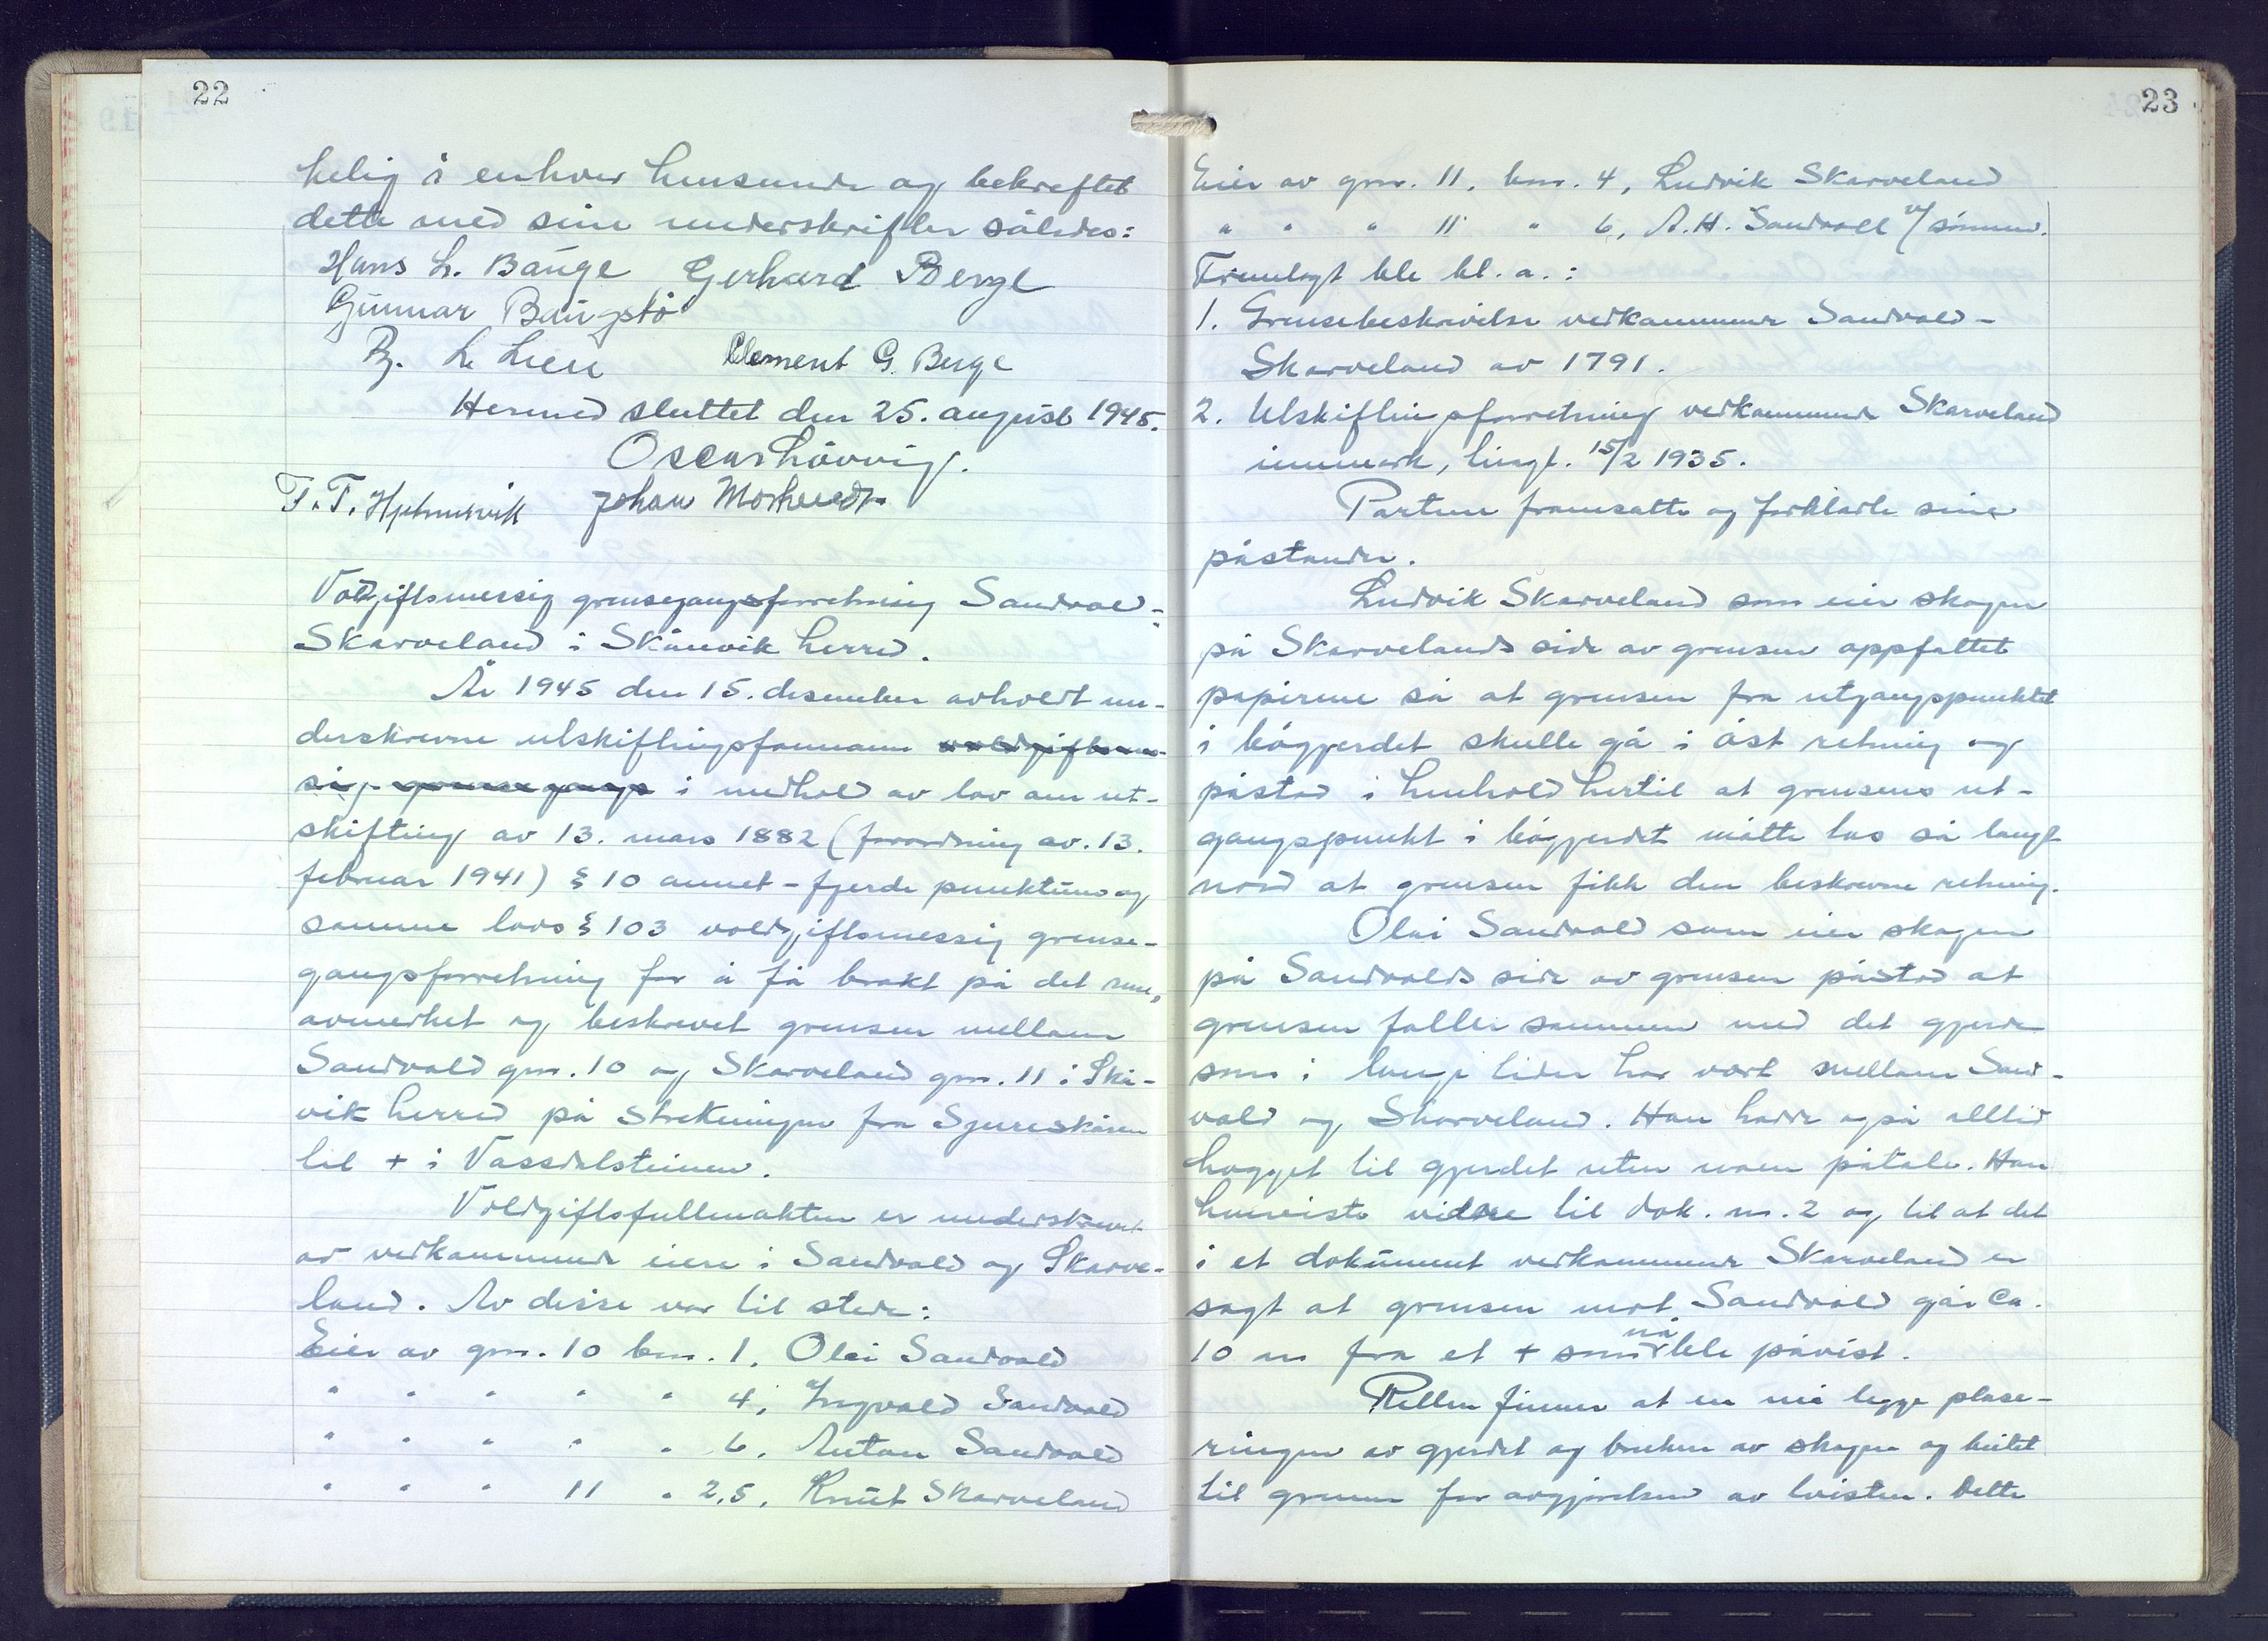 22
helig i enhver henseende og bekreftet
dette med sine underskrifter således:
Hans L. Bauge Gerhard Berge
Gunnar Baugstø
B. L. Lien Clement G. Berge
Hermed sluttet den 25. august 1945.
Oscar Løvvig.
T. T. Hjelmervik Johan
Voldgiftsmessig grensegangsforretning Sandvold-
Skarveland i Skånevik herred.
År 1945 den 15. desember avholdt un-
derskrevne utskiftningsformann voldgiftsmes-
sig grensegangs i medhold av lov om ut-
skiftning av 13. mars 1882 (forordning av. 13.
februar 1941) § 10 annet - fjerde punktum og
samme lovs § 103 voldgiftsmessig grense-
gangsforretning for å få brakt på det rene,
avmerket og beskrevet grensen mellom
Sandvold gnr. 10 og Skarveland gnr. 11 i Skå-
vik herred på strekningen fra Sjureskåren
til + i Vassdalsteinen.
Voldgiftsfullmakten er underskrevet
av vedkommende eiere i Sandvold og Skarve-
land. Av disse var til stede:
Eier av gnr. 10 bnr. 1, Olai Sandvold
" " " " " 4, Ingvald Sandvold
" " " " " 6, Anton Sandvold
" " " 11 " 2,5, Knut Skarveland
23
Eier av gnr. 11, bnr. 4, Ludvik Skarveland
" " " 11 " 6, A. H. Sandvoll v/ sønnen.
Fremlagt ble bl. a.:
1. Grensebeskrivelse vedkommende Sandvold-
Skarveland av 1791.
2. Utskiftningsforretning vedkommende Skarveland
innmark, tinglf. 15/2 1935.
Partene fremsatte og forklarte sine
påstander.
Ludvik Skarveland som eier skogen
på Skarvelands side av grensen oppfattet
papirene så at grensen fra utgangspunktet
i bøgjerdet skulle gå i øst retning og
påstod i henhold hertil at grensens ut-
gangspunkt i bøgjerdet måtte tas så langt
nord at grensen fikk den beskrevne retning.
Olai Sandvold som eier skogen
på Sandvolds side av grensen påstod at
grensen faller sammen med det gjerde
som i lange tider har vært mellom Sand-
vold og Skarveland. Han hadde også alltid
hogget til gjerdet uten noen påtale. Han
henviste videre til dok. nr. 2 og til at det
i et dokument vedkommende Skarveland er
sagt at grensen mot Sandvold går ca.
10 m fra et + som nå ble påvist.
Retten finner at en må legge plase-
ringen av gjerdet og bruken av skogen og beitet
til grunn for avgjørelsen av tvisten. Dette